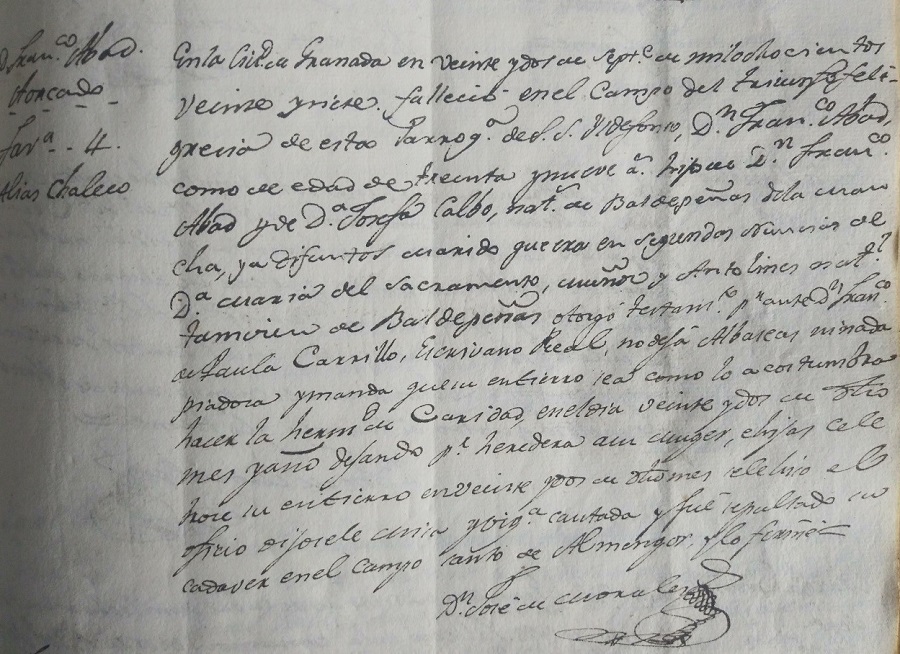 D. Fran.co Abad.
Aorcado
Par.a - 4.
Alias Chaleco
En la Ciu.d de Granada en veinte y dos de Sept.e de mil ochocientos
veinte y siete. fallecio en el Campo del triunfo feli-
grecia de esta Parroq.a de S. S. Yldefonso, D.n Fran.co Abad,
como de edad de treinta y nueve a.s hijo de D.n Fran.co
Abad y de D.a Josefa Calbo, nat.s de Baldepeñas de la man
cha, ya difuntos marido que era en segundas Nuncias de
D.a Maria del Sacramento, Muñoz y Antolines nat.l
tamvien de Baldepeñas otorgó testam.to p.r ante D.n Fran.co
de Paula Carrillo, Escrivano Real, no dejó Albaceas ni nada
piadoso y manda que su entierro sea como lo acostumbra
hacer la herm.d de Caridad, en el dia veinte y dos de dho
mes y año dejando p.r heredera a su muger, e hijas cele
hore su entierro en veinte y dos de dho mes se le hiso el
oficio dijosele misa y vig.a cantada y fué sepultado su
cadaver en el Campo santo de Almengor, y lo firmé =
D.n José de Morales